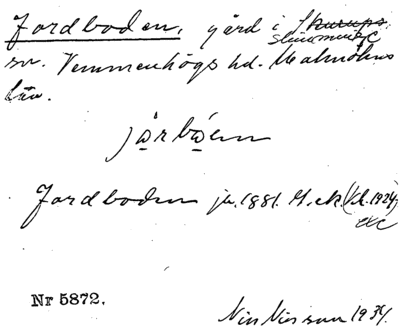 Jordboden, gård i Skurups
Slimminge
sn. Vemmenhögs hd. Malmöhus
län.
jårbåen
Jordboden jr. 1881. G.ek. (1924)
Nr 5872.
Nils Nilsson 1934.